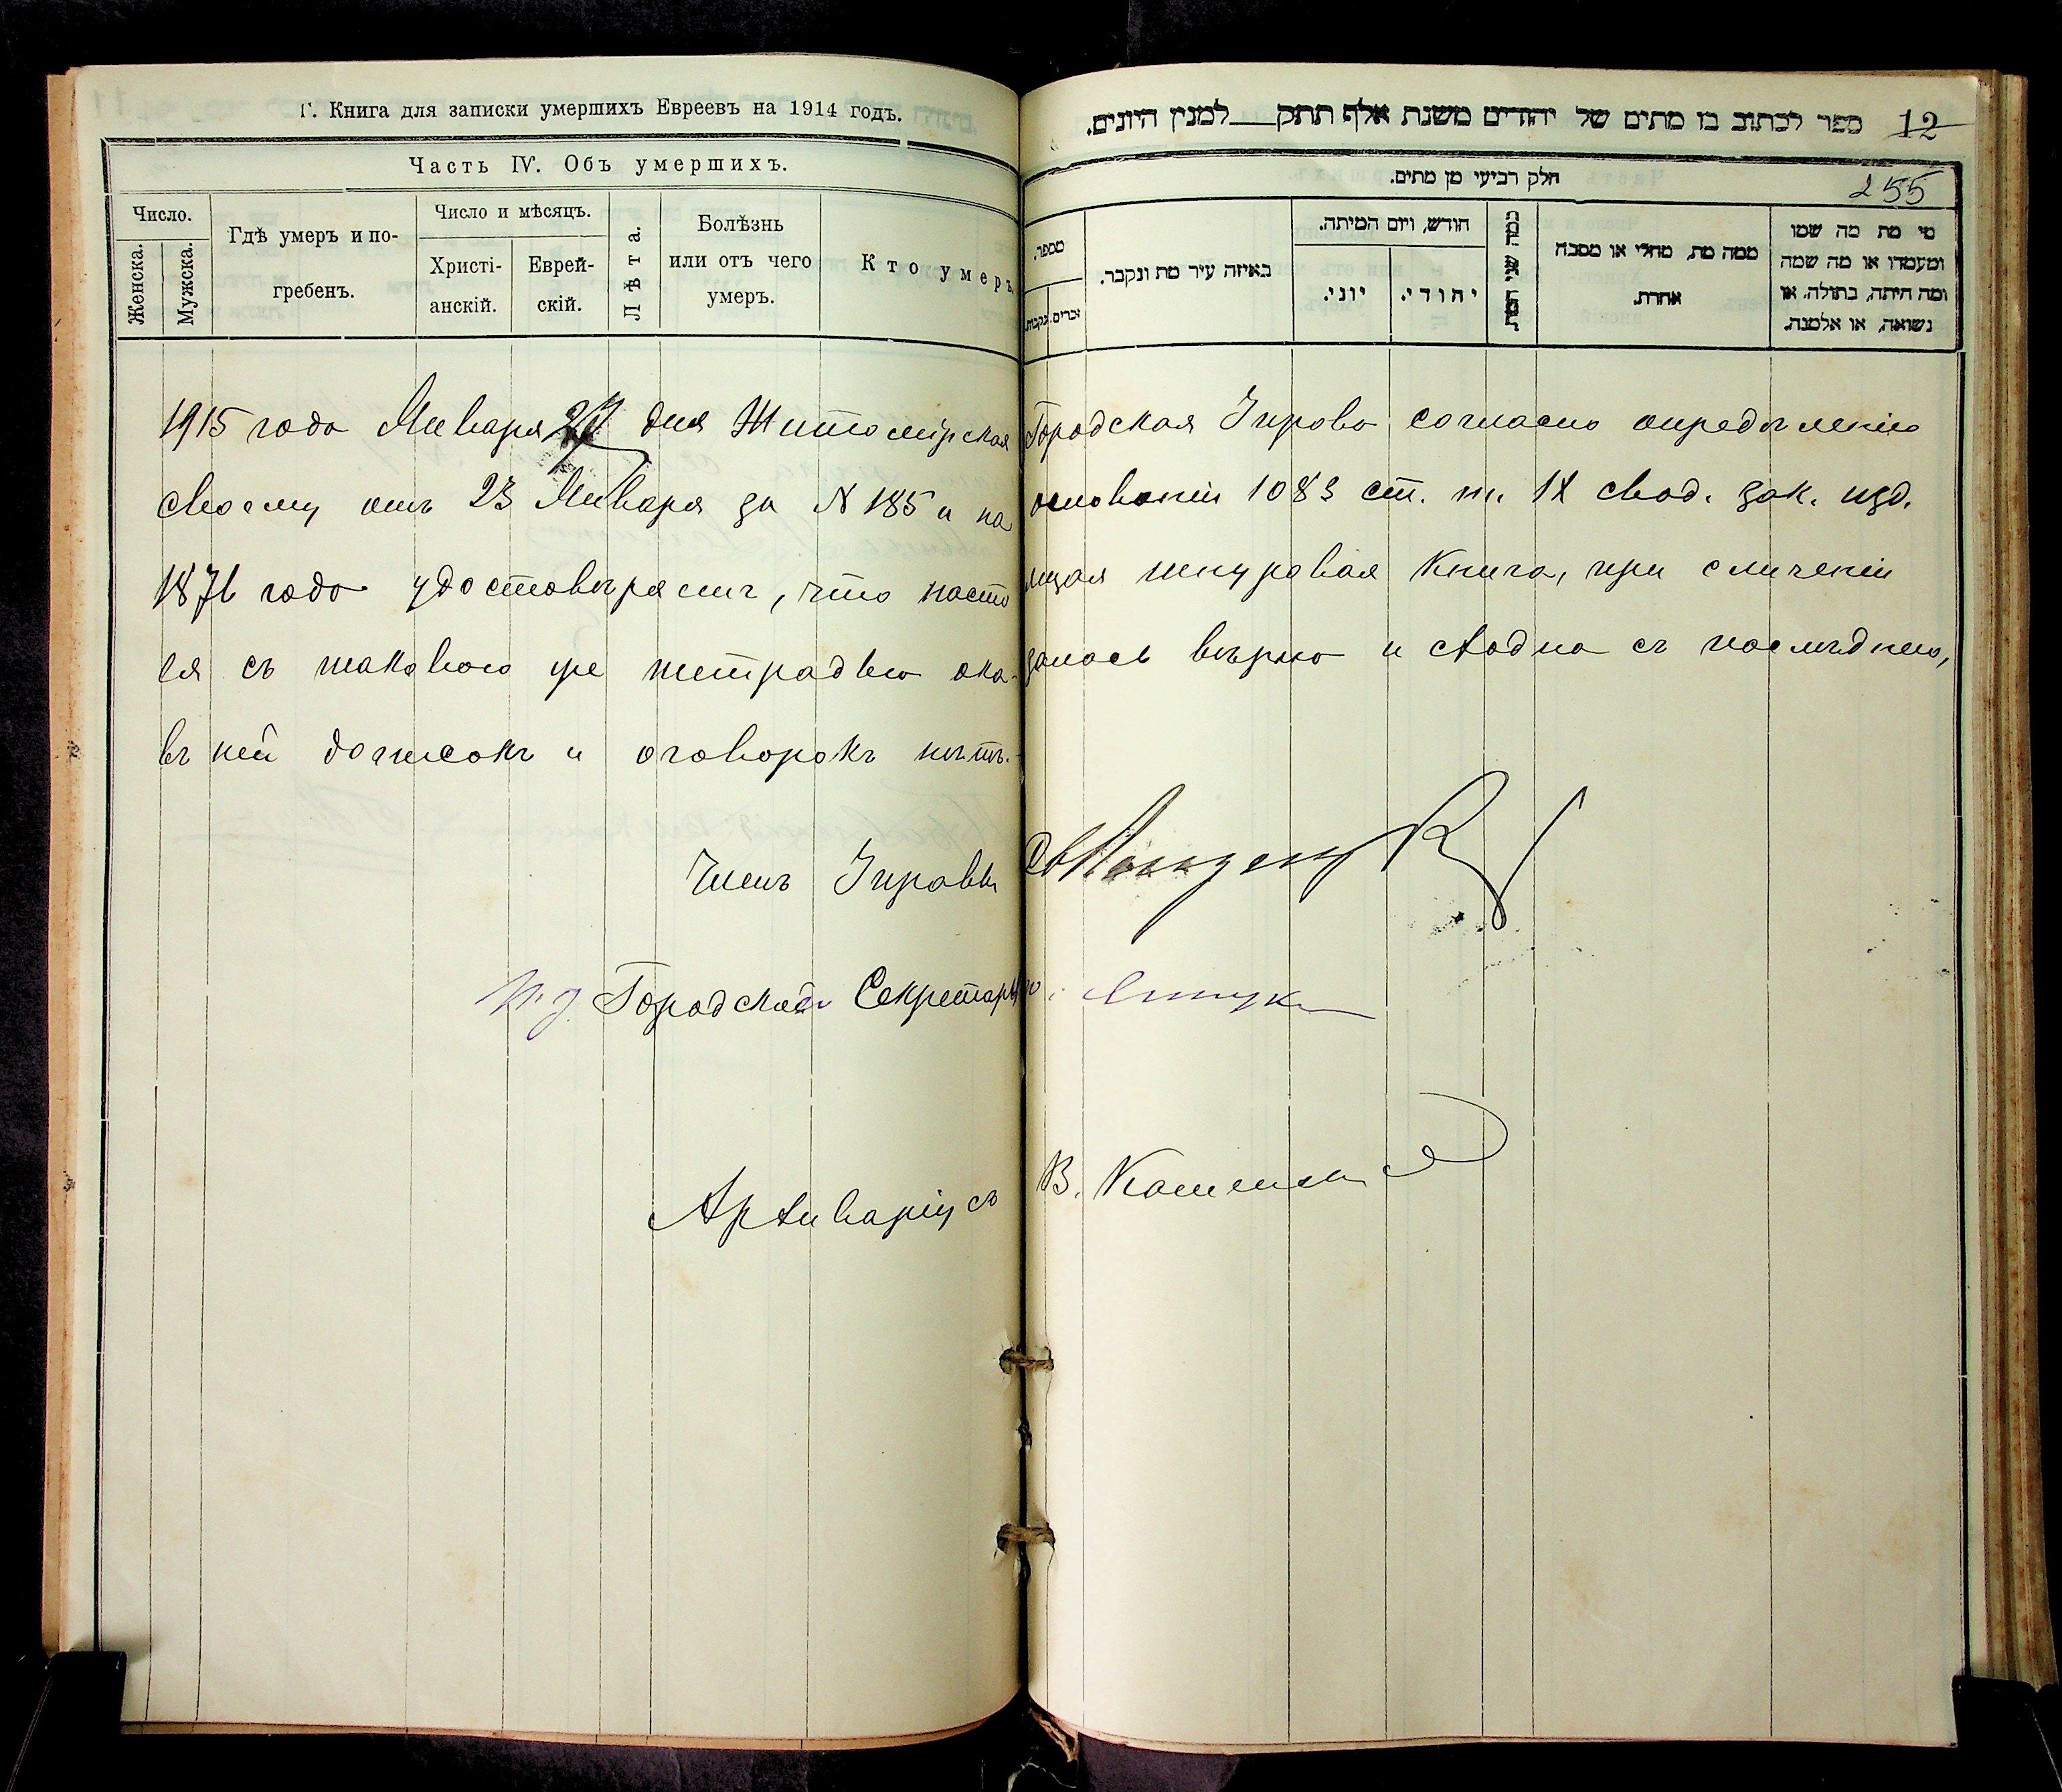 Г. Книга для записки умершихъ Евреевъ на 1914 годъ.
Часть IV. Объ умершихъ.
Число.
Женска.
Мужска.
Гдѣ умеръ и по-
гребенъ.
Число и мѣсяцъ.
Христі-
анскій.
Еврей-
скій.
Лѣта.
Болѣзнь
или отъ чего
умеръ.
Кто умеръ.
ספר לכתוב בו מתים של יהודים משנת אלף תתק למנין היונים.
12
255
חלק רביעי מן מתים.
מספר.
זכרים.
נקבות.
באיזה עיר מת ונקבר.
חודש, ויום המיתה.
יוני.
יהודי.
ממה מת, מחלי או מסבה
אחרת.
מי מת מה שמו
ומעמדו או מה שמה
ומה היתה, בתולה, או
נשואה, או אלמנה.
1915 года Января 27 дня Житомірская Городская Управа согласно опредѣленію
своему отъ 23 Января за N 185 и на основаніи 1083 ст. т. IX свод. зак. изд.
1876 года удостовѣряетъ, что настоящая шнуровая книга, при сличеніи
ея съ таковою же тетрадью оказалась вѣрно и сходна съ послѣднею,
въ ней дописокъ и оговорокъ нѣтъ.
Членъ Управы
И. д. Городского Секретаря
Архиваріусъ В.